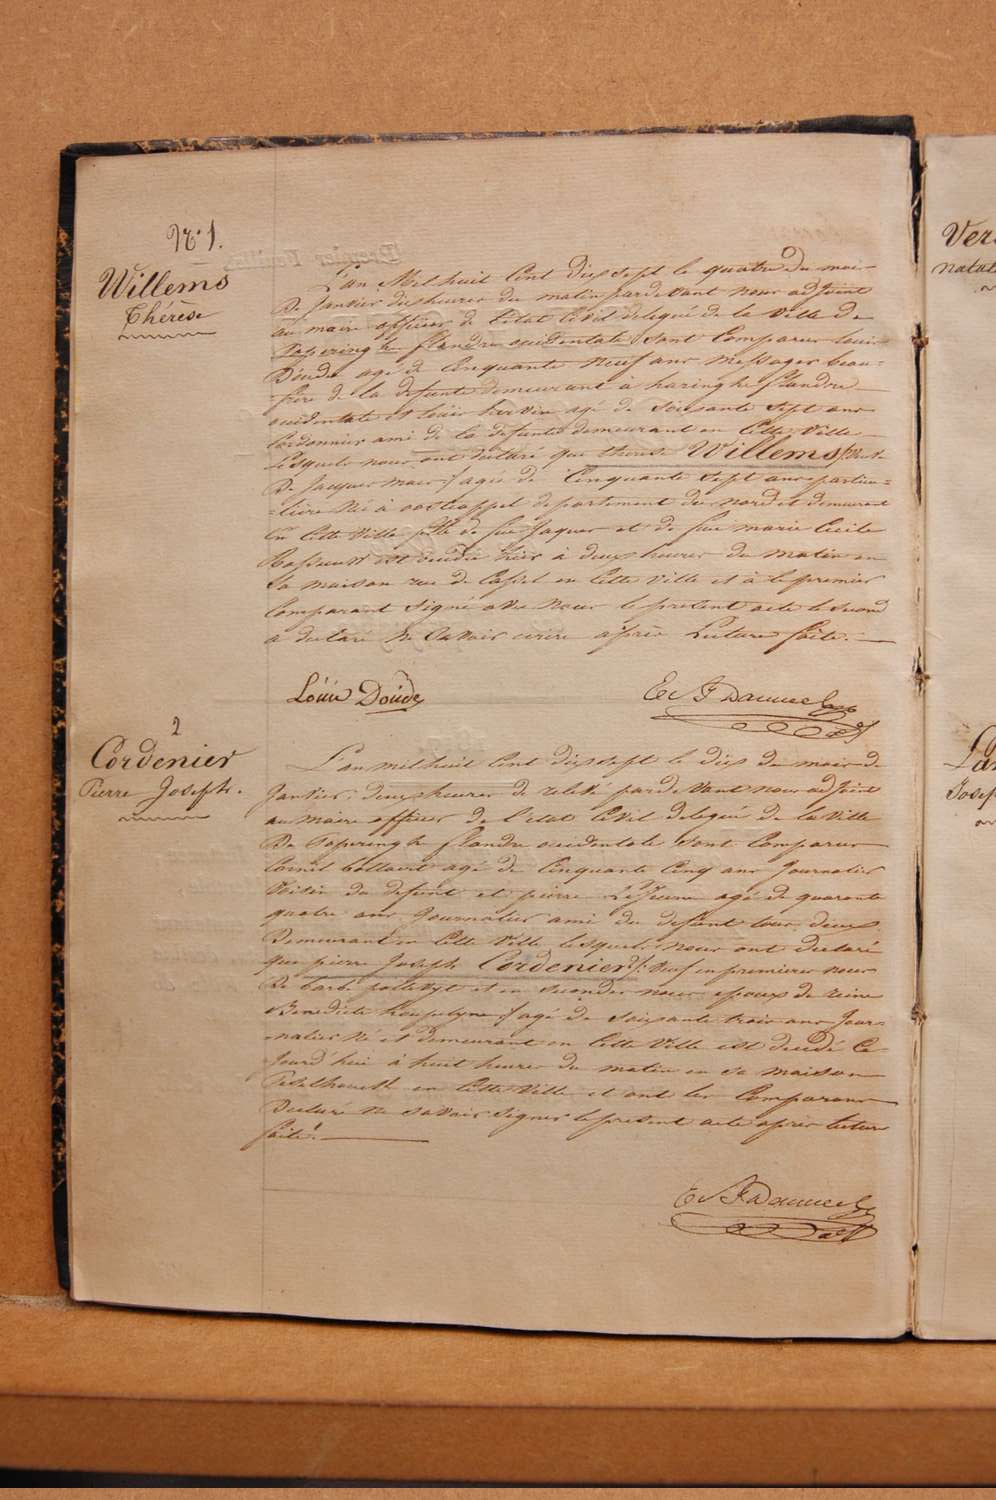 N.º 1.
Willems
Thérèse
L'an Mil huit Cent dix sept le quatre du mois
De Janvier dix heures du matin pardevant nous adjoint
au maire officier de l'état Civil delegué de la Ville De
Poperinghe flandre occidentale sont Comparus louis
Doude agé de Cinquante neuf ans messager beau-
frère de la defunte demeurant à haringhe flandre
occidentale et louis agé de soixante sept ans
Cordonnier ami de la defunte demeurant en Cette Ville
lesquels nous ont declaré que therese Willems
De Jacques agée de Cinquante sept ans particu=
=lière Né à oostcappel departement du nord et demeurant
En Cette Ville fille de feu Jaques et de feue marie Cecile
est decedée hier à deux heures du matin en
Sa maison rue de Cassel en Cette Ville et à le premier
Comparant Signé avec Nous le present acte le second
a declaré Ne Savoir ecrire après Lecture faite.
Louis Doude
2
Cordenier
Pierre Joseph.
L'an mil huit Cent dix sept le dix du mois de
Janvier, deux heures de relevé pardevant nous adjoint
au maire officier de l'etat Civil delegué de la Ville
De Poperinghe flandre occidentale sont Comparus
Cornil agé de Cinquante Cinq ans Journalier
Voisin du defunt et pierre Lejeune agé de quarante
quatre ans Journalier ami du defunt tous deux
Demeurant en Cette Ville lesquels nous ont declaré
que pierre Joseph Cordenier veuf en premieres noces
De barbe et en secondes noces epoux de reine
Benedicte agé de soixante trois ans Jour-
-nalier Né et demeurant en Cette Ville est decedé Ce
Jourd'hui à huit heures du matin en sa maison
en Cette Ville et ont les Comparans
Declaré Ne savoir signer le present acte après lecture
faite.
Ver
natal
La
Josep